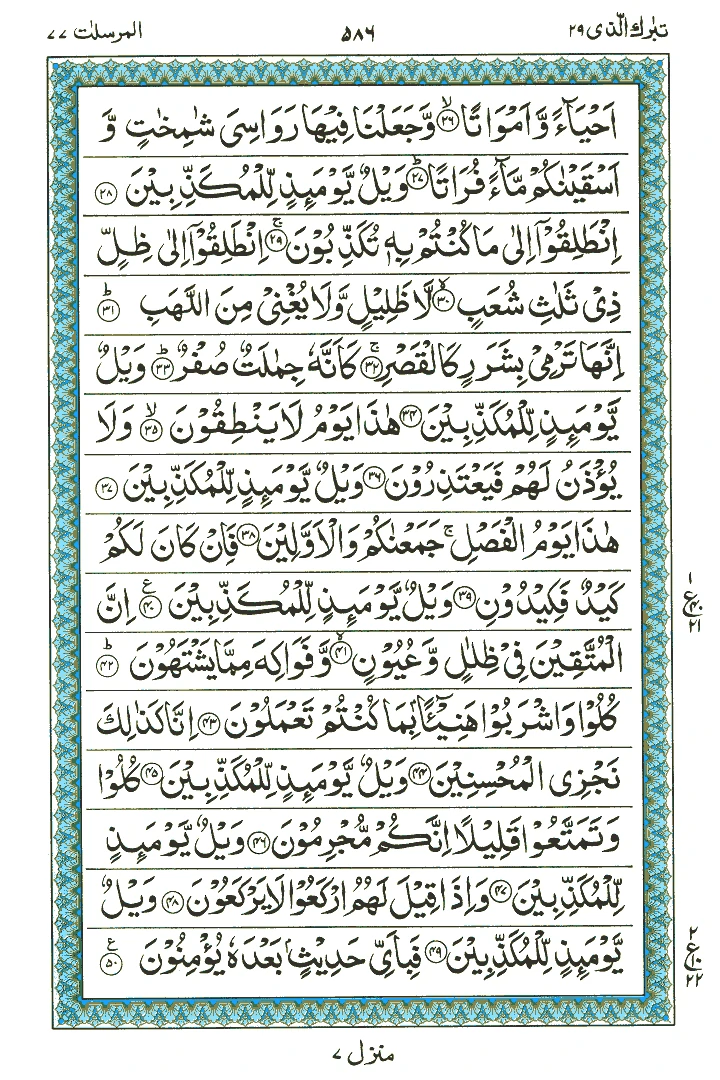 تبٰرك الّذی ٢٩
٥٨٦
المرسلٰت ٧٧
اَحْيَآءً وَّاَمْوَاتًا ۙ﴿٢٦﴾ وَّجَعَلْنَا فِيْهَا رَوَاسِیَ شٰمِخٰتٍ وَّ
اَسْقَيْنٰكُمْ مَّآءً فُرَاتًا ؕ﴿٢٧﴾ وَيْلٌ يَّوْمَئِذٍ لِّلْمُكَذِّبِيْنَ ﴿٢٨﴾
اِنْطَلِقُوْۤا اِلٰی مَا كُنْتُمْ بِهٖ تُكَذِّبُوْنَ ۚ﴿٢٩﴾ اِنْطَلِقُوْۤا اِلٰی ظِلٍّ
ذِیْ ثَلٰثِ شُعَبٍ ۙ﴿٣٠﴾ لَّا ظَلِيْلٍ وَّلَا يُغْنِیْ مِنَ اللَّهَبِ ؕ﴿٣١﴾
اِنَّهَا تَرْمِیْ بِشَرَرٍ كَالْقَصْرِ ۚ﴿٣٢﴾ كَاَنَّهٗ جِمٰلَتٌ صُفْرٌ ؕ﴿٣٣﴾ وَيْلٌ
يَّوْمَئِذٍ لِّلْمُكَذِّبِيْنَ ﴿٣٤﴾ هٰذَا يَوْمُ لَا يَنْطِقُوْنَ ۙ﴿٣٥﴾ وَلَا
يُؤْذَنُ لَهُمْ فَيَعْتَذِرُوْنَ ﴿٣٦﴾ وَيْلٌ يَّوْمَئِذٍ لِّلْمُكَذِّبِيْنَ ﴿٣٧﴾
هٰذَا يَوْمُ الْفَصْلِ ۚ جَمَعْنٰكُمْ وَالْاَوَّلِيْنَ ﴿٣٨﴾ فَاِنْ كَانَ لَكُمْ
كَيْدٌ فَكِيْدُوْنِ ﴿٣٩﴾ وَيْلٌ يَّوْمَئِذٍ لِّلْمُكَذِّبِيْنَ ﴿٤٠﴾ع اِنَّ
١
ع ٤٠
٢١
الْمُتَّقِيْنَ فِیْ ظِلٰلٍ وَّعُيُوْنٍ ۙ﴿٤١﴾ وَّفَوَاكِهَ مِمَّا يَشْتَهُوْنَ ؕ﴿٤٢﴾
كُلُوْا وَاشْرَبُوْا هَنِيْٓـئًۢا بِمَا كُنْتُمْ تَعْمَلُوْنَ ﴿٤٣﴾ اِنَّا كَذٰلِكَ
نَجْزِی الْمُحْسِنِيْنَ ﴿٤٤﴾ وَيْلٌ يَّوْمَئِذٍ لِّلْمُكَذِّبِيْنَ ﴿٤٥﴾ كُلُوْا
وَتَمَتَّعُوْا قَلِيْلًا اِنَّكُمْ مُّجْرِمُوْنَ ﴿٤٦﴾ وَيْلٌ يَّوْمَئِذٍ
لِّلْمُكَذِّبِيْنَ ﴿٤٧﴾ وَاِذَا قِيْلَ لَهُمُ ارْكَعُوْا لَا يَرْكَعُوْنَ ﴿٤٨﴾ وَيْلٌ
يَّوْمَئِذٍ لِّلْمُكَذِّبِيْنَ ﴿٤٩﴾ فَبِاَیِّ حَدِيْثٍۭ بَعْدَهٗ يُؤْمِنُوْنَ ﴿٥٠﴾ع
٢
ع ١٠
٢٢
منزل ٧